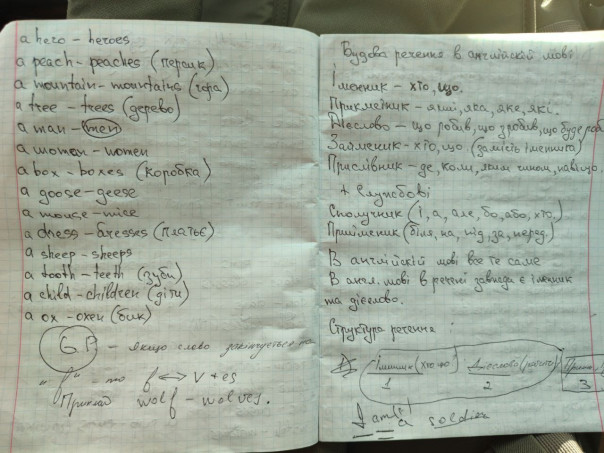 a hero - heroes
a peach - peaches (персик)
a mountain - mountains (гора)
a tree - trees (дерево)
a man - men
a woman - women
a box - boxes (коробка)
a goose - geese
a mouse - mice
a dress - dresses (платье)
a sheep - sheeps
a tooth - teeth (зуби)
a child - children (діти)
a ox - oxen (бик)
- якщо слово закінчується на
"f" - то f ↔ v + es
Приклад wolf - wolves.
Будова речення в англійскій мові
Іменник - хто, що.
Прикметник - який, яка, яке, які.
Дієслово - що робив, що зробив, що буде роб
Займеник - хто, що (замість іменника)
Прислівник - де, коли, яким чином, навіщо.
+ Службові
Сполучник (і, а, але, бо, або, хто,)
Прийменик (біля, на, під, за, перед)
В англійскій мові все те саме
В англ. мові в речені завжди є іменик
та дієслово.
Структура речення
Іменик (хто-що) Дієслово
1 2 3
I am a soldier